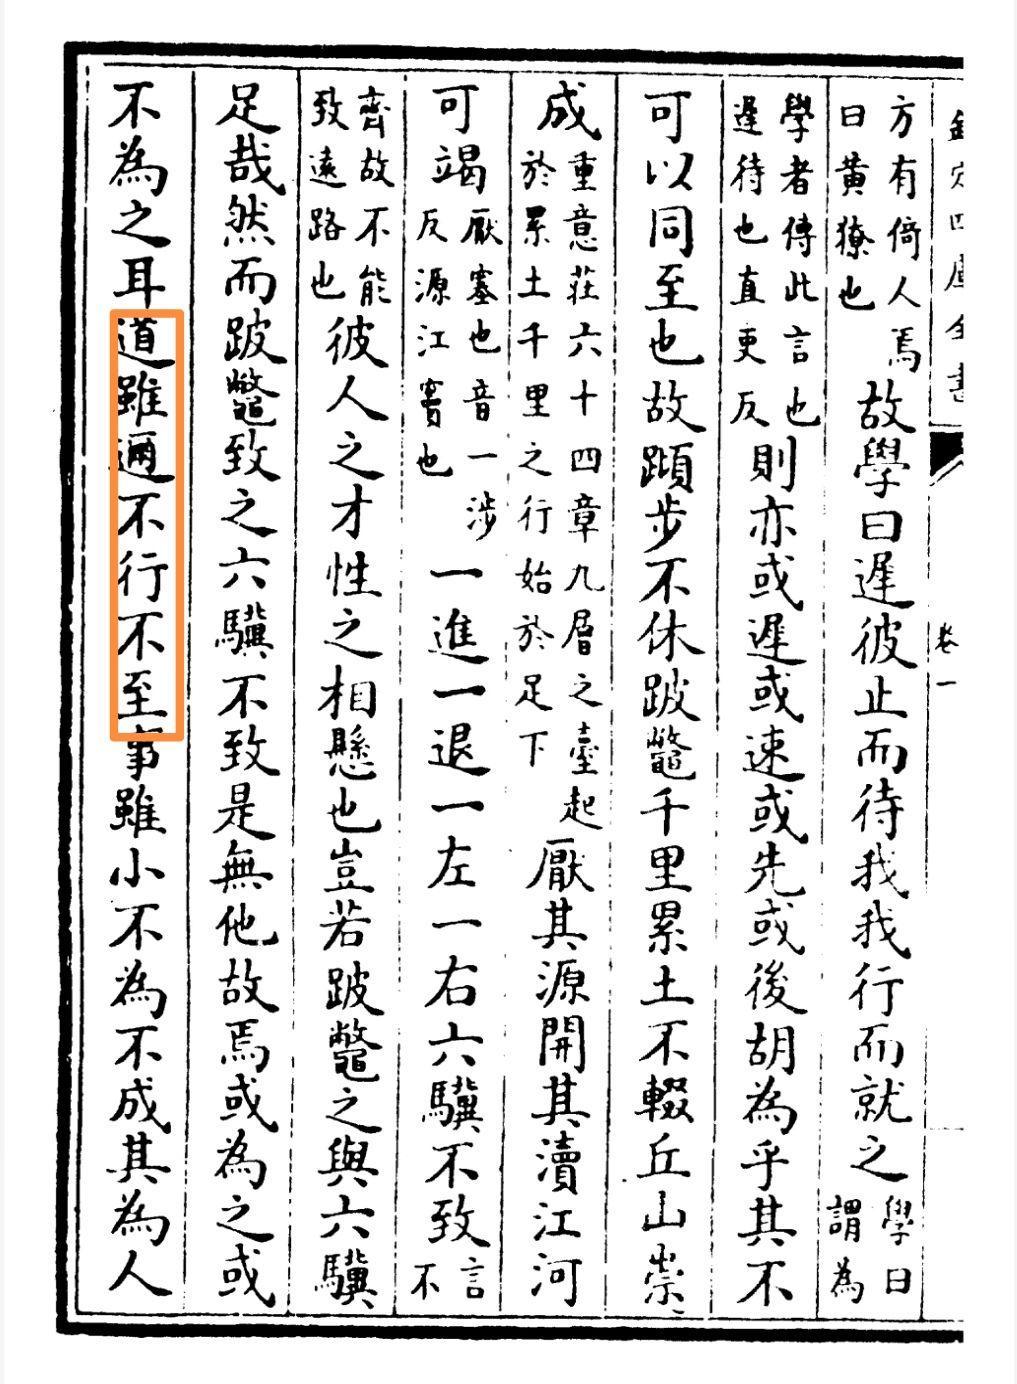 欽定四庫全書
卷一
方有倚人焉
曰黃獠也
故學曰遲彼止而待我我行而就之
學曰
謂為
學者傳此言也
遲待也直吏反
則亦或遲或速或先或後胡為乎其不
可以同至也故蹞步不休跛鼈千里累土不輟丘山崇
成
重意莊六十四章九層之臺起
於累土千里之行始於足下
厭其源開其瀆江河
可竭
厭塞也音一涉
反源江竇也
一進一退一左一右六驥不致
言
不
齊故不能
致遠路也
彼人之才性之相懸也豈若跛鼈之與六驥
足哉然而跛鼈致之六驥不致是無他故焉或為之或
不為之耳道雖邇不行不至事雖小不為不成其為人